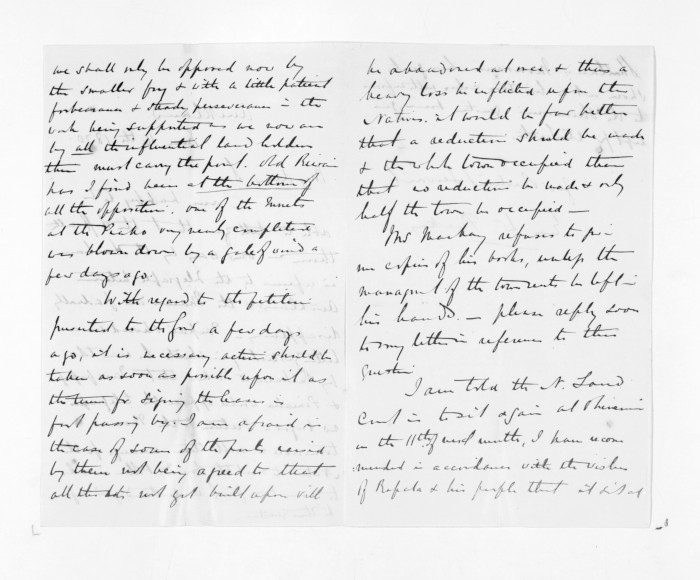 we shall only be opposed now by
the smaller fry & with a little patient
forbearance & steady perseverance in the
work being supported as we now are
by all the influential land holders
then must carry the point. Old Rewi
has I find been at the bottom of
all the opposition. One of the
at the Reko very nearly completed
was blown down by a gale of wind a
few days ago.
With regard to the petition
presented to the Govr a few days
ago, it is necessary action should be
taken as soon as possible upon it as
the time for signing the leases is
fast passing by. I am afraid in
the case of some of the points raised
by them not being agreed to that
all the lots not yet built upon will
be abandoned at once & thus a
heavy loss be inflicted upon the
Natives. it would be far better
that a reduction should be made
& the whole town occupied than
that no reduction be made & only
half the town be occupied —
Mr Mackay refuses to
me copies of his books, unless the
managmt of the town rents be left in
his hands. — please reply soon
to my letter in reference to this
question
I am told the N. Land
Court is to sit again at
on the 11th of next month, I have recom
mended in accordance with the wishes
of Ropata & his people that it sit at